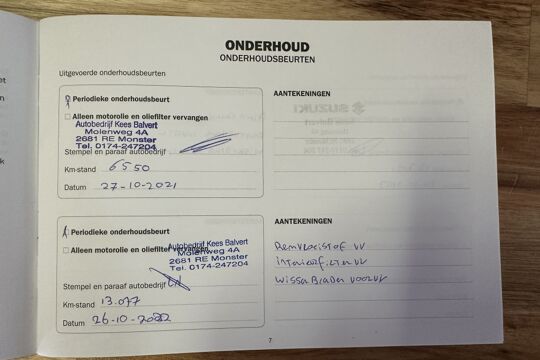 ONDERHOUD
ONDERHOUDSBEURTEN
Uitgevoerde onderhoudsbeurten
Periodieke onderhoudsbeurt
Alleen motorolie en oliefilter vervangen
Autobedrijf Kees Balvert
Molenweg 4A
2681 RE Monster
Tel. 0174-247204
Stempel en paraaf autobedrijf
Km-stand 6550
Datum 27-10-2021
AANTEKENINGEN
SUZUKI
Periodieke onderhoudsbeurt
Alleen motorolie en oliefilter vervangen
Autobedrijf Kees Balvert
Molenweg 4A
2681 RE Monster
Tel. 0174-247204
Stempel en paraaf autobedrijf
Km-stand 13.077
Datum 26-10-2022
AANTEKENINGEN
Remvloeistof VV
interieurfilter VV
Wisser Bladen voor VV
7